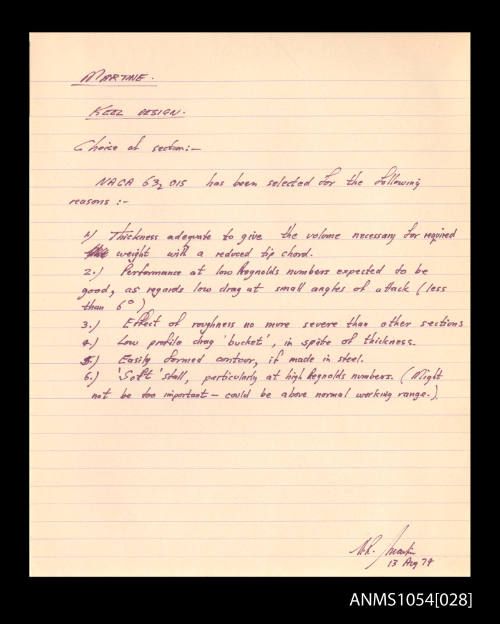 MARTINE.
KEEL DESIGN.
Choice of section:-
NACA 63₂ 015 has been selected for the following
reasons :-
1.) Thickness adequate to give the volume necessary for required
weight with a reduced tip chord.
2.) Performance at low Reynolds numbers expected to be
good, as regards low drag at small angles of attack (less
than 6°)
3.) Effect of roughness no more severe than other sections
4.) Low profile drag 'bucket', in spite of thickness.
5.) Easily formed contour, if made in steel.
6.) 'Soft' stall, particularly at high Reynolds numbers. (Might
not be too important - could be above normal working range.)
Martin
13 Aug 74
ANMS1054[028]